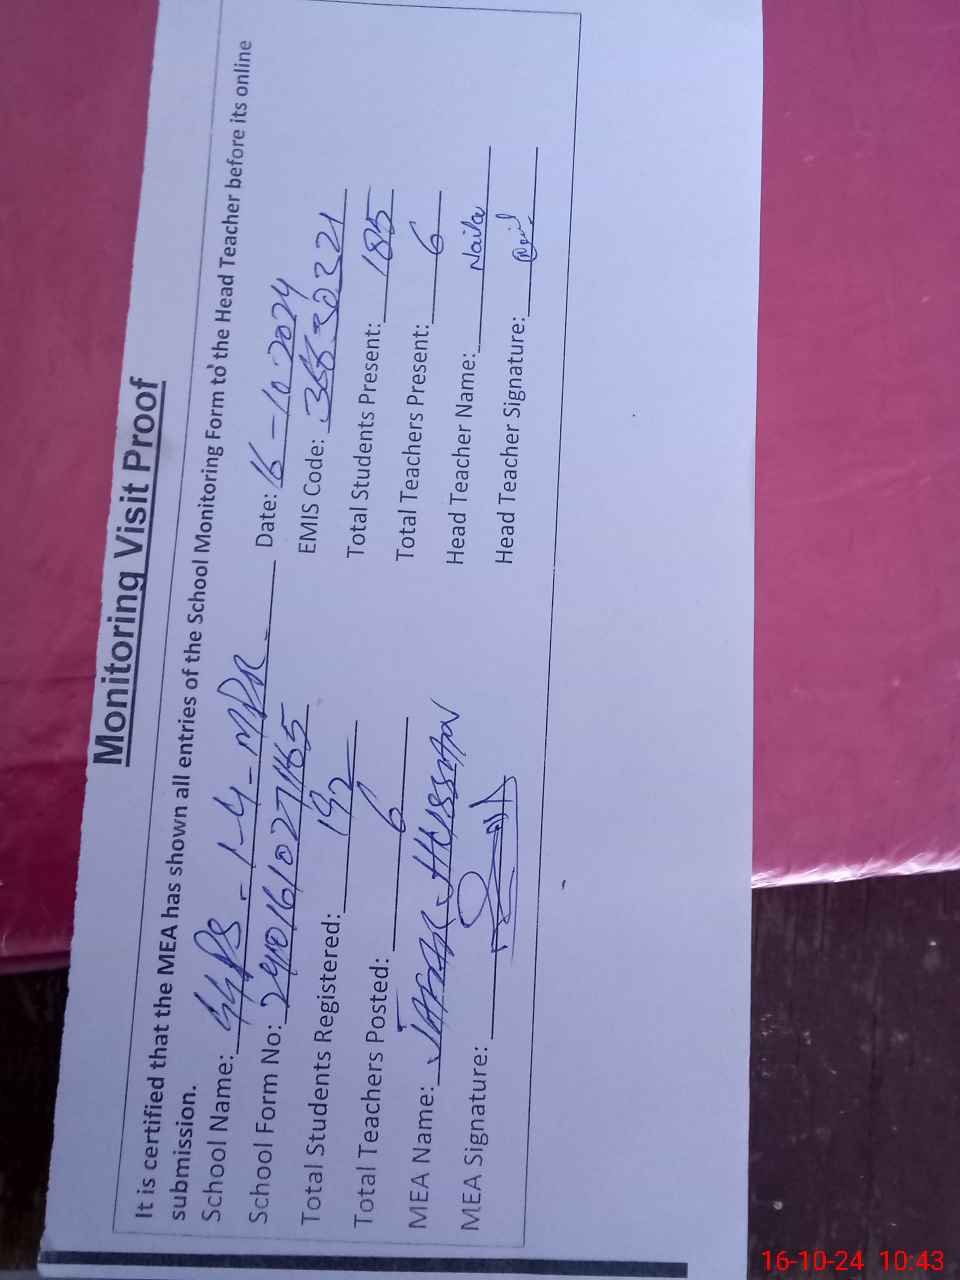 Monitoring Visit Proof
It is certified that the MEA has shown all entries of the School Monitoring Form to the Head Teacher before its online
submission.
School Name: GGPS - 1-4-MPR Date: 16-10-2024
School Form No: EMIS Code:
Total Students Registered: 192 Total Students Present: 185
Total Teachers Posted: 6 Total Teachers Present: 6
MEA Name: JAFAR HUSSAIN Head Teacher Name: Naila
MEA Signature: Head Teacher Signature:
16-10-24 10:43